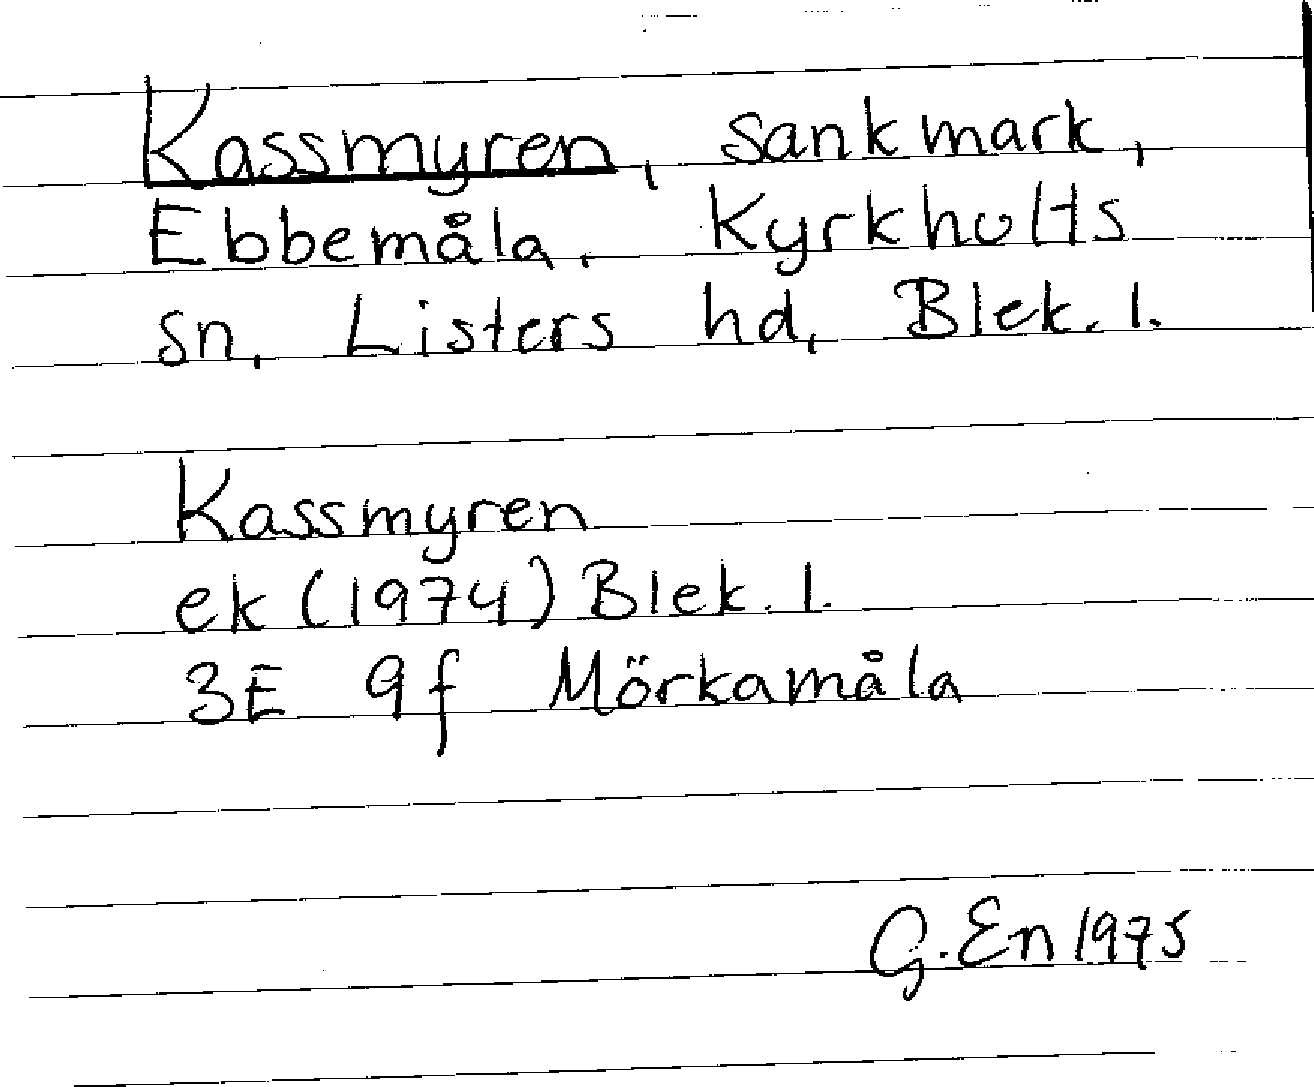 Kassmyren, sankmark,
Ebbemåla, Kyrkhults
sn, Listers hd, Blek. l.
Kassmyren
ek (1974) Blek. l.
3E 9f Mörkamåla
G. En 1975